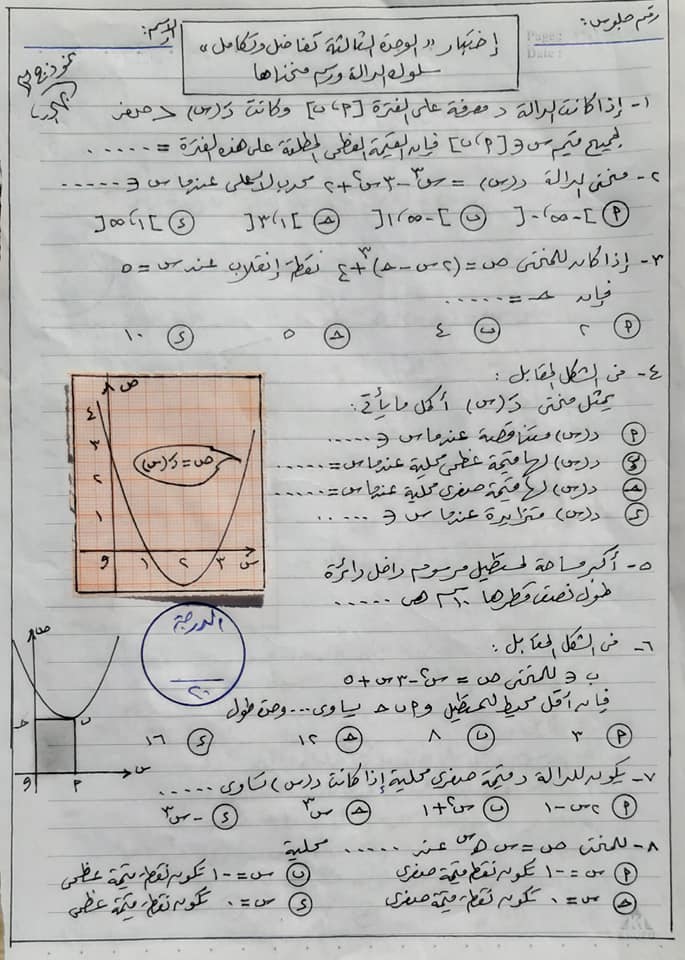 رقم جلوس:
الاسم:
إختبار "الوحدة الثالثة تفاضل وتكامل"
سلوك الدالة ورسم منحناها
Page:
Date:
نموذج ٣
١- إذا كانت الدالة د معرفة على الفترة [٢، ب] وكانت دَ(س) > صفر
لجميع قيم س ∈ [٢، ب] فإن القيمة العظمى المطلقة على هذه الفترة = .....
٢- منحنى الدالة د(س) = س٣ - ٣س٢ + ٢ محدب لأعلى عندما س ∈ .....
أ ]-∞، ٠[ ب ]-∞، ١[ حـ ]١، ٣[ ء ]١، ∞[
٣- إذا كان للمنحنى ص = (٢س - حـ)٣ + ٤ نقطة إنقلاب عند س = ٥
فإن حـ = .....
أ ٢ ب ٤ حـ ٥ ء ١٠
٤- فى الشكل المقابل:
يمثل منحنى دَ(س) أكمل ما يأتى:
أ د(س) متناقصة عندما س ∈ .....
ب د(س) لها قيمة عظمى محلية عندما س = .....
حـ د(س) لها قيمة صغرى محلية عندما س = .....
ء د(س) متزايدة عندما س ∈ .....
ص
٤
٣
٢
١
ص = دَ(س)
و ١ ٢ ٣ س
٥- أكبر مساحة لمستطيل مرسوم داخل دائرة
طول نصف قطرها ١٠سم هى .....
الدرجة
٢٠
٦- فى الشكل المقابل:
ب ∈ للمنحنى ص = س٢ - ٣س + ٥
فإن أقل محيط للمستطيل و أ ب حـ يساوى ... وحدة طول
أ ٣ ب ٨ حـ ١٢ ء ١٦
ص
حـ ب
و أ س
٧- يكون للدالة د قيمة صغرى محلية إذا كانت د(س) تساوى .....
أ ٢س - ١ ب س٢ + ١ حـ س٣ ء -س٣
٨- للمنحنى ص = س هـس عند ..... محلية
أ س = -١ تكون نقطة قيمة صغرى ب س = -١ تكون نقطة قيمة عظمى
حـ س = ٠ تكون نقطة قيمة صغرى ء س = ٠ تكون نقطة قيمة عظمى